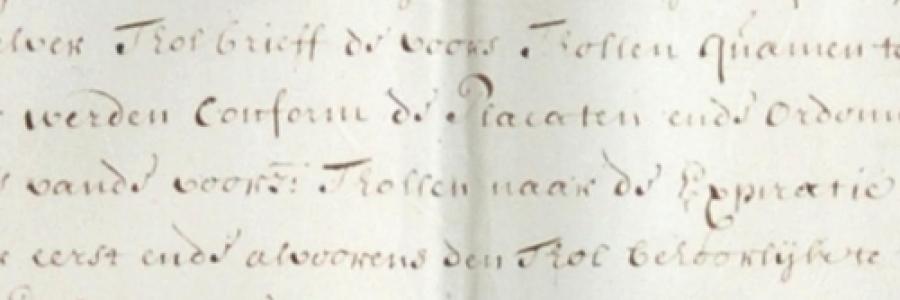 elver Thol brieff de voors Thollen quamen te
werden Conform de Placaten ende Ordonn
vande voorsz: Thollen naar de Expiratie
eerst ende alvoorens den Thol behoorlijk te